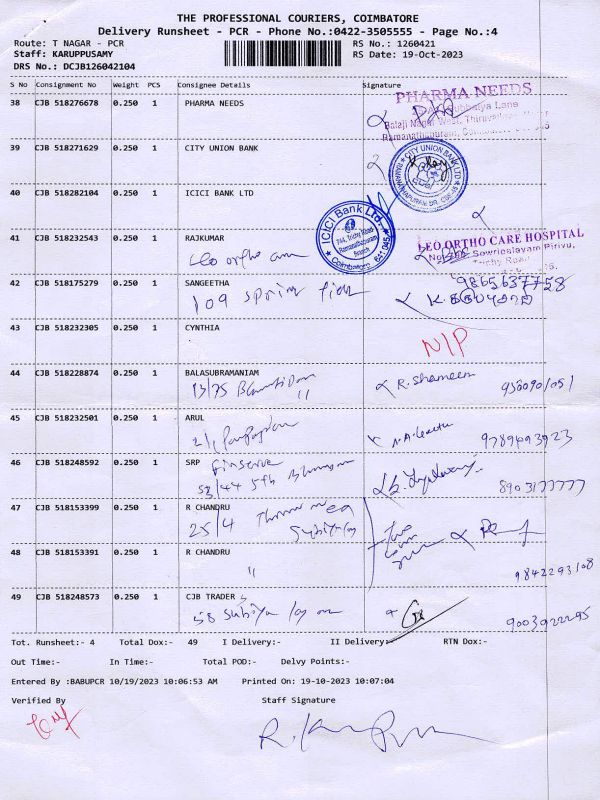 THE PROFESSIONAL COURIERS, COIMBATORE
Delivery Runsheet - PCR - Phone No.:0422-3505555 - Page No.:4
Route: T NAGAR - PCR RS No.: 1260421
Staff: KARUPPUSAMY RS Date: 19-Oct-2023
DRS No.: DCJB126042104
S No Consignment No Weight PCS Consignee Details Signature
38 CJB 518276678 0.250 1 PHARMA NEEDS
PHARMA NEEDS
39 CJB 518271629 0.250 1 CITY UNION BANK
CITY UNION BANK LTD
40 CJB 518282104 0.250 1 ICICI BANK LTD
ICICI Bank Ltd.
Trichy Road
Ramanathapuram
Branch
Coimbatore 641 045
41 CJB 518232543 0.250 1 RAJKUMAR
Leo ortho
LEO ORTHO CARE HOSPITAL
Sowripalayam Pirivu,
Trichy Road
42 CJB 518175279 0.250 1 SANGEETHA
109 spring field
9865637758
43 CJB 518232305 0.250 1 CYNTHIA
N/P
44 CJB 518228874 0.250 1 BALASUBRAMANIAM
R. Shameem
45 CJB 518232501 0.250 1 ARUL
9789493923
46 CJB 518248592 0.250 1 SRP
Finserve
53/44 5th
8903177777
47 CJB 518153399 0.250 1 R CHANDRU
25/4
48 CJB 518153391 0.250 1 R CHANDRU
"
9842293108
49 CJB 518248573 0.250 1 CJB TRADERS
58
9003922295
Tot. Runsheet:- 4 Total Dox:- 49 I Delivery:- II Delivery:- RTN Dox:-
Out Time:- In Time:- Total POD:- Delvy Points:-
Entered By :BABUPCR 10/19/2023 10:06:53 AM Printed On: 19-10-2023 10:07:04
Verified By Staff Signature